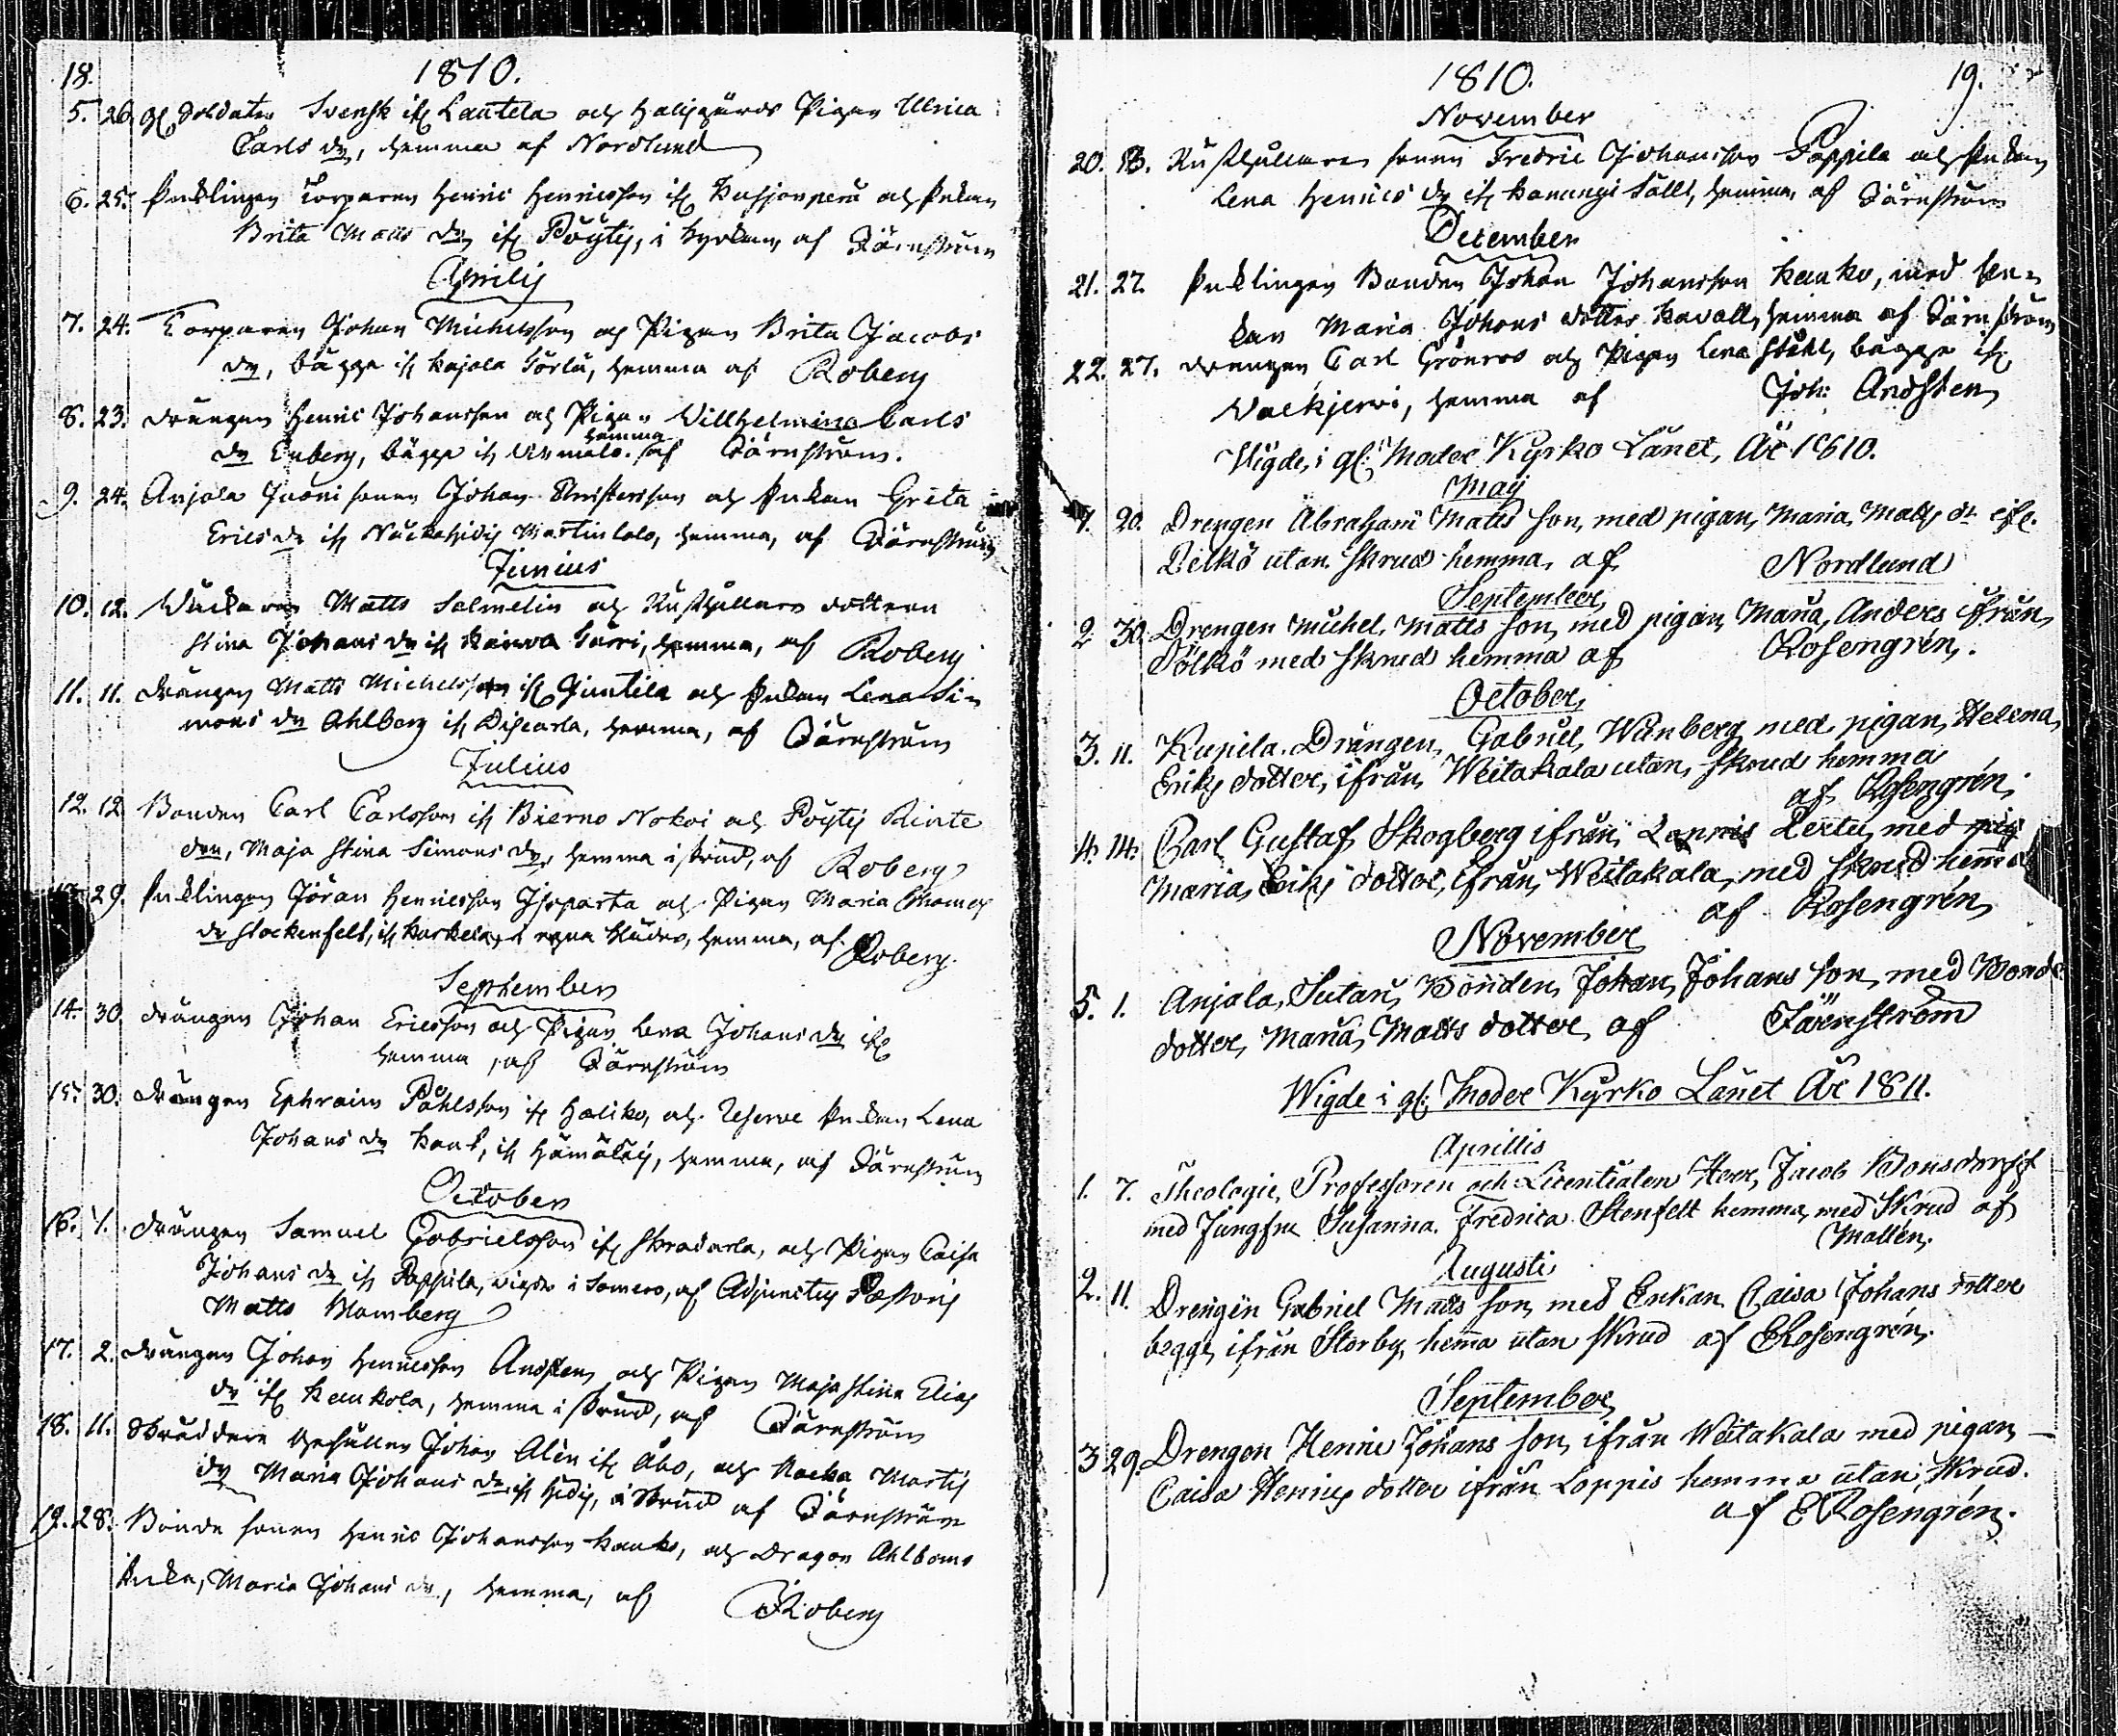 18.
1810.
5. 26. gl. Soldaten Svensk ifr Lautela och Pigan Ulrica
Carls dr, hemma af Nordlund
6. 25. Enklingen Torparen Henric Henricsson ifr och Enkan
Brita Matts dr ifr Pöyty, i Kyrkan, af Färnström
Aprilis
7. 24. Torparen Johan Michelsson och Pigan Brita Jacobs
dr, bägge ifr Kajala hemma af Roberg
8. 23. Drängen Henric Johansson och Pigan Willhelmina Carls
dr Enberg, bägge ifr hemma af Färnström.
9. 24. Anjala sonen Johan och Enkan Greta
Erics dr ifr Martin hemma, af Färnström
Junius
10. 12. Matts Salmelin och Rusthållare dottren
Stina Johans dr ifr hemma, af Roberg
11. 11. Drängen Matts Michelsson ifr Juntila och Enkan Lena Si-
mons dr Ahlberg ifr hemma, af Färnström
Julius
12. 12. Bonden Carl Carlsson ifr Bierno Nokoi och Pöyty
Maja Stina Simons dr, hemma i skrud, af Roberg
29. Enklingen Jöran Henricsson Isoparta och Pigan Maria Thomas
dr Stockenfelt, ifr i egna kläder, hemma, af Roberg.
September
14. 30. Drängen Johan Ericsson och Pigan Lena Johans dr ifr
hemma, af Färnström
15. 30. Drängen Ephraim Påhlsson ifr Haliko, och Reserve Enkan Lena
Johans dr ifr hemma, af Färnström
October
16. 1. Drängen Samuel Gabrielsson ifr och Pigan Caisa
Johans dr ifr Pappila, vigde i Somero, af Adjunctus Pastoris
Matts Blomberg
17. 2. Drängen Johan Henricsson och Pigan Maja Stina Elias
dr ifr Kaukola, hemma i skrud, af Färnström
18. 11. Skräddare Gesällen Johan Alén ifr Åbo, och
dr Maria Johans dr ifr i Skrud af Färnström
19. 28. Bonde sonen Henric Johansson Kauko, och Dragon Ahlboms
Enka, Maria Johans dr, hemma, af Roberg
1810.
19.
November
20. 13. Rusthållare sonen Fredric Johansson Pappila och Enkan
Lena Henrics dr ifr hemma, af Färnström
December
21. 27. Enklingen Bonden Johan Johansson Kauko, med En-
kan Maria Johans dotter hemma af Färnström
22. 27. Drengen Carl Grönroos och Pigan Lena Ståhl, bägge ifr
hemma af Joh: Andsten
Wigde, i gl: Moder Kyrko Länet, År 1810.
Maij
1. 20. Drengen Abraham Matts son, med pigan, Maria, Matts dr ifr.
utan skrud hemma, af Nordlund
September
2 30. Drengen Michel, Matts son, med pigan, Maria, Anders ifrån,
Pölkö med skrud hemma af Rosengrén.
October
3. 11. Kupila, Drängen, Gabriel, Winberg, med pigan, Helena,
Eriks dotter, ifrån, Weitakala utan, skrud hemma
af Rosengrén.
4. 14. Carl Gustaf Skogberg ifrån, med
Maria, Eriks dotter, ifrån, Weitakala, med skrud hemma
af Rosengrén
November
5. 1. Anjala, Sutari, Bonden, Johan, Johans son, med Bonde
dotter, Maria, Matts dotter, af Färnström
Wigde i gl: Moder Kyrko Länet År 1811.
Aprillis
1. 7. Theologie, Professoren och Licentiaten Herr, Jacob Bonsdorff
med Jungfru Susanna Fredrica Stenfelt hemma, med Skrud af
Mollén,
Augusti
2. 11. Drengen Gabriel Matts son, med Enkan Caisa Johans dotter
begge, ifrån Storby, hemma utan skrud af E Rosengrén.
September
3 29. Drengen Henric Johans son, ifrån Weitakala med pigan,
Caisa Henrics dotter ifrån Loppis hemma utan, skrud.
af E Rosengrén.